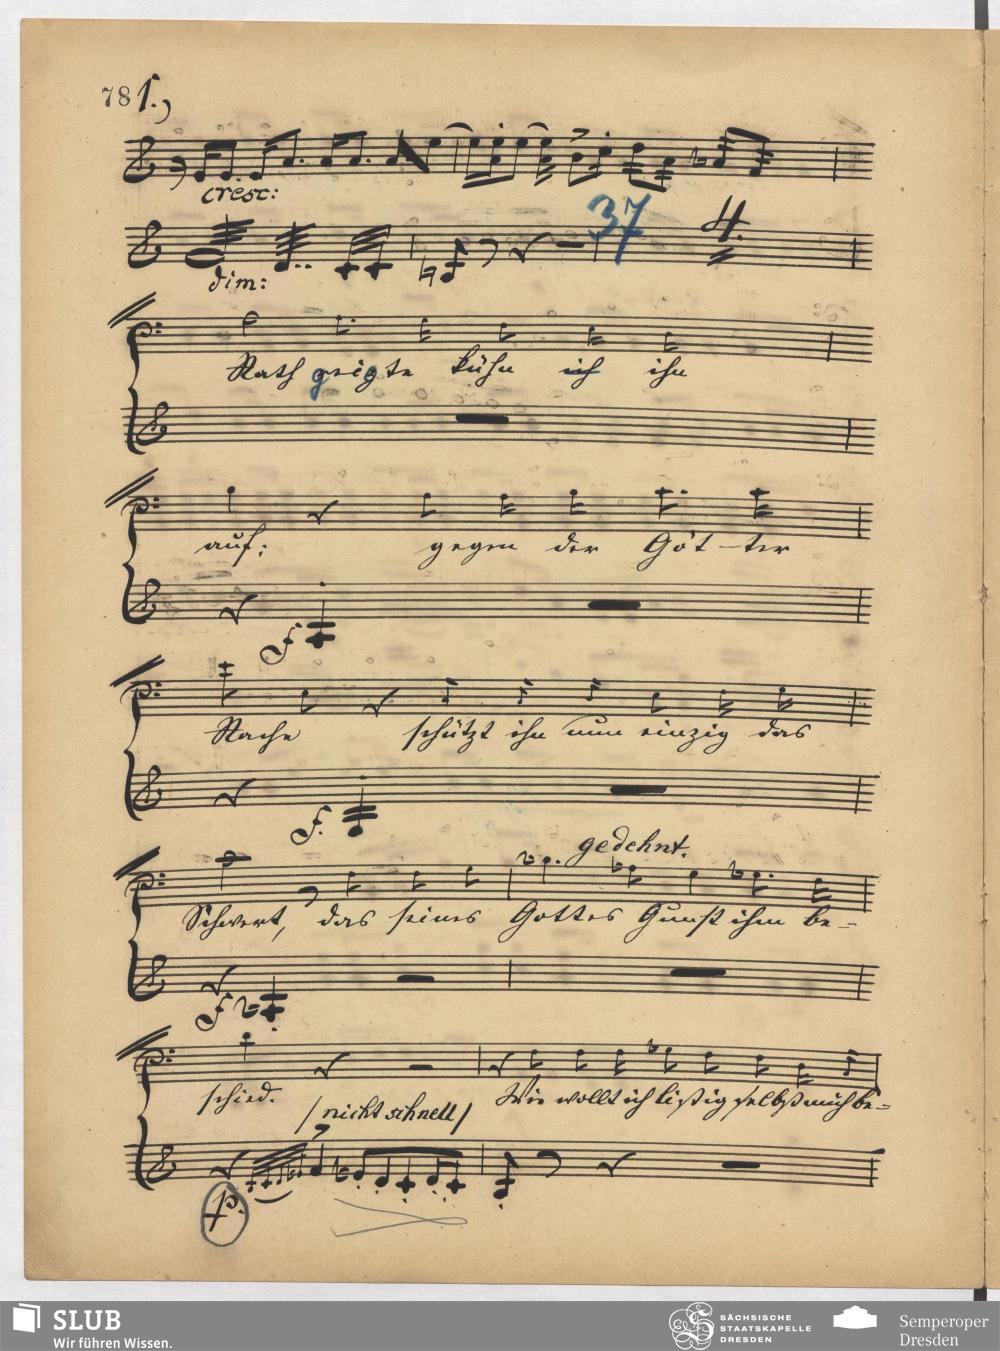 78 1.,
cresc:
dim:
37 4.
Rath geigte kühn ich ihn
auf; gegen der Göt-ter
f
Rache schützt ihn nun einzig das
f.
gedehnt.
Schwert, das seines Gottes Gunst ihm be-
f
schied. Wie wollt ich listig selbst mich be-
/nicht schnell/
p.
SLUB
Wir führen Wissen.
SÄCHSISCHE
STAATSKAPELLE
DRESDEN
Semperoper
Dresden